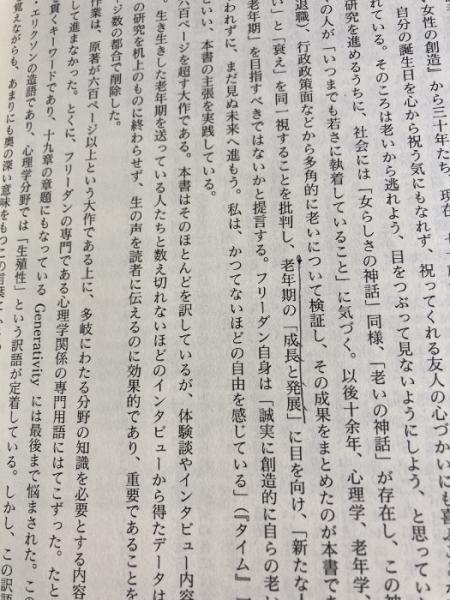 女性の創造』から三十年たち、現在
自分の誕生日を心から祝う気にもなれず、祝ってくれる友人の心づかいにも喜ぶこと
れている。そのころは老いから逃れよう、目をつぶって見ないようにしよう、と思ってい
研究を進めるうちに、社会には「女らしさの神話」同様、「老いの神話」が存在し、この神
の人が「いつまでも若さに執着していること」に気づく。以後十余年、心理学、老年学、
退職）、行政政策面などから多角的に老いについて検証し、その成果をまとめたのが本書で
い」と「衰え」を同一視することを批判し、老年期の「成長と発展」に目を向け、「新たな人
老年期」を目指すべきではないかと提言する。フリーダン自身は「誠実に創造的に自らの老い
われずに、まだ見ぬ未来へ進もう。私は、かつてないほどの自由を感じている」（『タイム』
いい、本書の主張を実践している。
六百ページを超す大作である。本書はそのほとんどを訳しているが、体験談やインタビュー内容
。生き生きした老年期を送っている人たちと数え切れないほどのインタビューから得たデータは
の研究を机上のものに終わらせず、生の声を読者に伝えるのに効果的であり、重要であることを
ージ数の都合で削除した。
作業は、原著が六百ページ以上という大作である上に、多岐にわたる分野の知識を必要とする内容
して進まなかった。とくに、フリーダンの専門である心理学関係の専門用語にはてこずった。たと
貫くキーワードであり、十九章の章題にもなっている Generativity には最後まで悩まされた。この
・エリクソンの造語であり、心理学分野では「生殖性」という訳語が定着している。しかし、この訳語
覚えながらも、あまりにも奥の深い意味をもつこの言葉